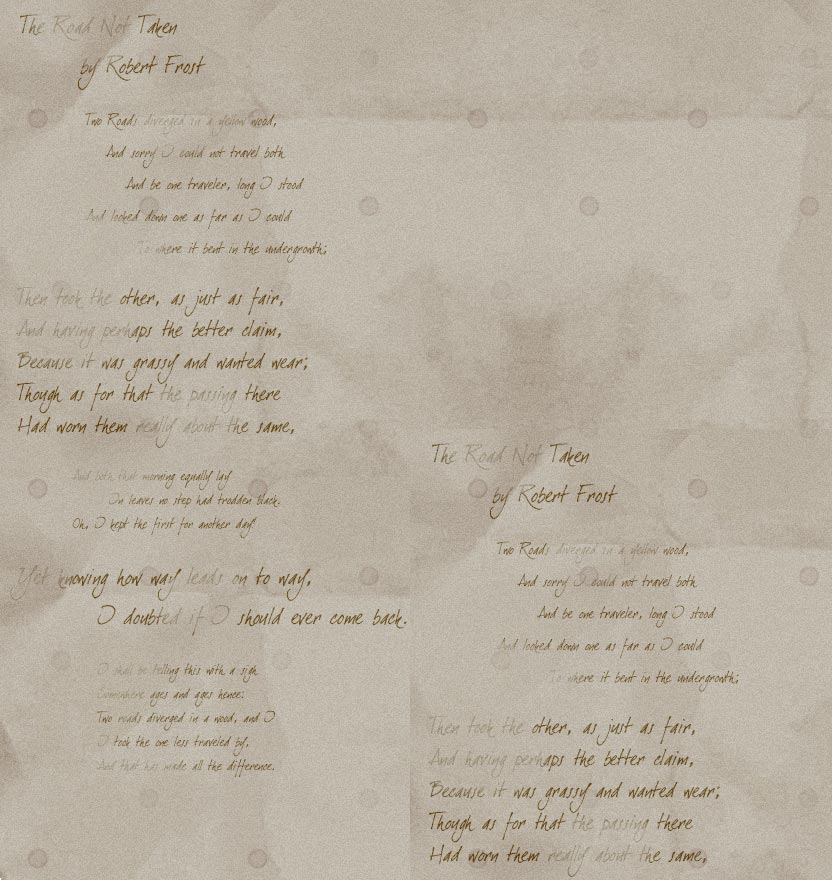 The Road Not Taken
by Robert Frost
Two Roads diverged in a yellow wood,
And sorry I could not travel both
And be one traveler, long I stood
And looked down one as far as I could
To where it bent in the undergrowth;
Then took the other, as just as fair,
And having perhaps the better claim,
Because it was grassy and wanted wear;
Though as for that the passing there
Had worn them really about the same,
And both that morning equally lay
In leaves no step had trodden black.
Oh, I kept the first for another day!
Yet knowing how way leads on to way,
I doubted if I should ever come back.
I shall be telling this with a sigh
Somewhere ages and ages hence:
Two roads diverged in a wood, and I
I took the one less traveled by,
And that has made all the difference.
The Road Not Taken
by Robert Frost
Two Roads diverged in a yellow wood,
And sorry I could not travel both
And be one traveler, long I stood
And looked down one as far as I could
To where it bent in the undergrowth;
Then took the other, as just as fair,
And having perhaps the better claim,
Because it was grassy and wanted wear;
Though as for that the passing there
Had worn them really about the same,